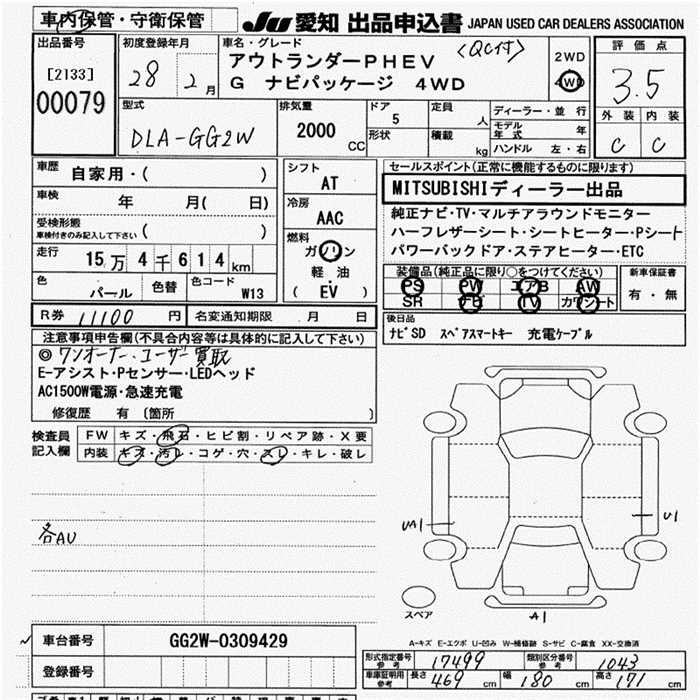 車内保管・守衛保管
JU 愛知 出品申込書 JAPAN USED CAR DEALERS ASSOCIATION
出品番号
[2133]
00079
初度登録年月
28 2月
車名・グレード
<QC付>
アウトランダーPHEV
G ナビパッケージ 4WD
2WD
4WD
評価点
3.5
外装 内装
C C
型式
DLA-GG2W
排気量
2000 CC
ドア
5
形状
定員
人
積載
kg
ディーラー・並行
モデル年式 年
ハンドル 左・右
車歴
自家用・( )
車検
年 月( 日)
受検形態
車検付きのみ記入して下さい ( )
走行
15万4千614km
色
パール
色替
色コード
W13
シフト
AT
冷房
AAC
燃料
ガソリン
軽油
( EV )
セールスポイント(正常に機能するものに限ります)
MITSUBISHIディーラー出品
純正ナビ・TV・マルチアラウンドモニター
ハーフレザーシート・シートヒーター・Pシート
パワーバックドア・ステアヒーター・ETC
装備品(純正品に限り○をつけてください)
PS PW エアB AW
SR TV カワシート
新車保証書
有・無
R券 11100 円
名変通知期限 月 日
後日品
ナビSD スペアスマートキー 充電ケーブル
注意事項申告欄(不具合内容等は具体的に記入して下さい)
◎ワンオーナー、ユーザー買取
E-アシスト・Pセンサー・LEDヘッド
AC1500W電源・急速充電
修復歴 有 〔箇所 〕
検査員
記入欄
FW キズ・飛石・ヒビ割・リペア跡・X要
内装 キズ・汚レ・コゲ・穴・スレ・キレ・破レ
各AU
UA1
U1
A1
スペア
車台番号 GG2W-0309429
登録番号
A-キズ E-エクボ U-凹み W-補修跡 S-サビ C-腐食 XX-交換済
形式指定番号 参考 17499
類別区分番号 参考 1043
車庫証明用 参考
長さ 469 cm 幅 180 cm 高さ 171 cm